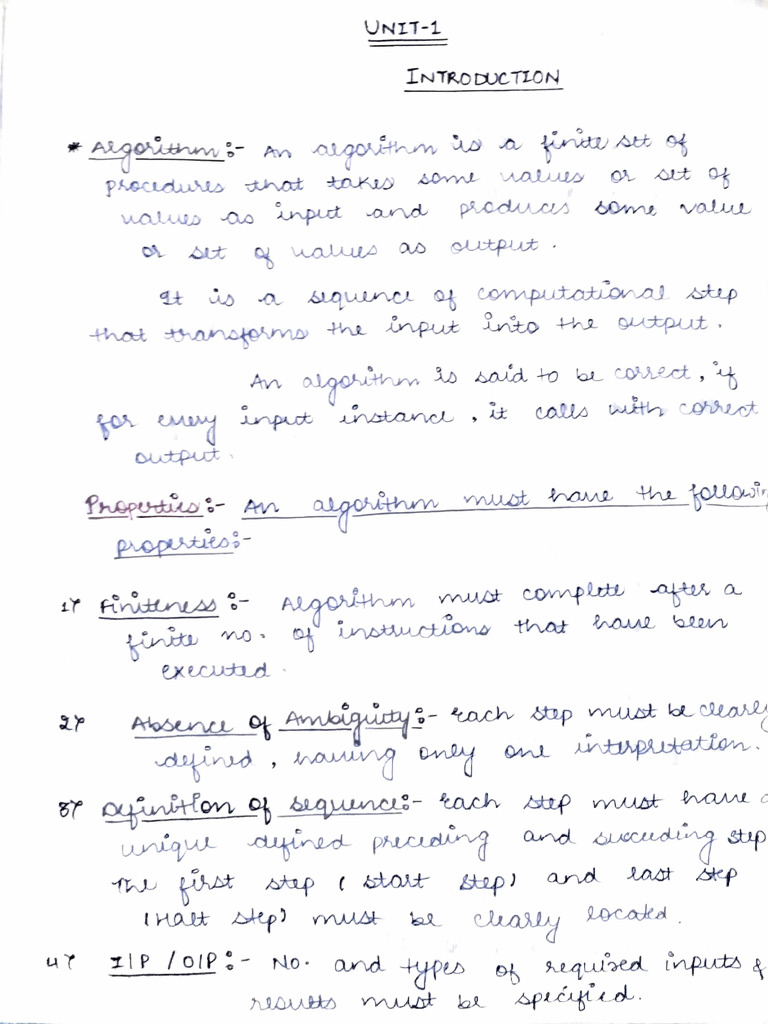 UNIT-1
INTRODUCTION
* Algorithm:- An algorithm is a finite set of
procedures that takes some values or set of
values as input and produces some value
or set of values as output.
It is a sequence of computational step
that transforms the input into the output.
An algorithm is said to be correct, if
for every input instance, it calls with correct
output.
Properties:- An algorithm must have the followin
properties:-
1) Finiteness:- Algorithm must complete after a
finite no. of instructions that have been
executed.
2) Absence of Ambiguity:- Each step must be clearly
defined, having only one interpretation.
3) Definition of sequence:- Each step must have a
unique defined preceding and succeeding step
The first step (start step) and last step
(Halt step) must be clearly located.
4) I/P / O/P:- No. and types of required inputs &
results must be specified.